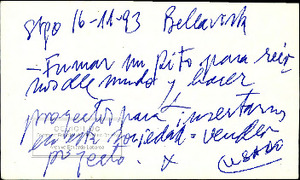 Stgo 16-11-93 Bellavista
- Fumar un pito para reir
nos del mundo y hacer
proyectos para insertarnos
en esta sociedad = vender
proyecto. X (USADO